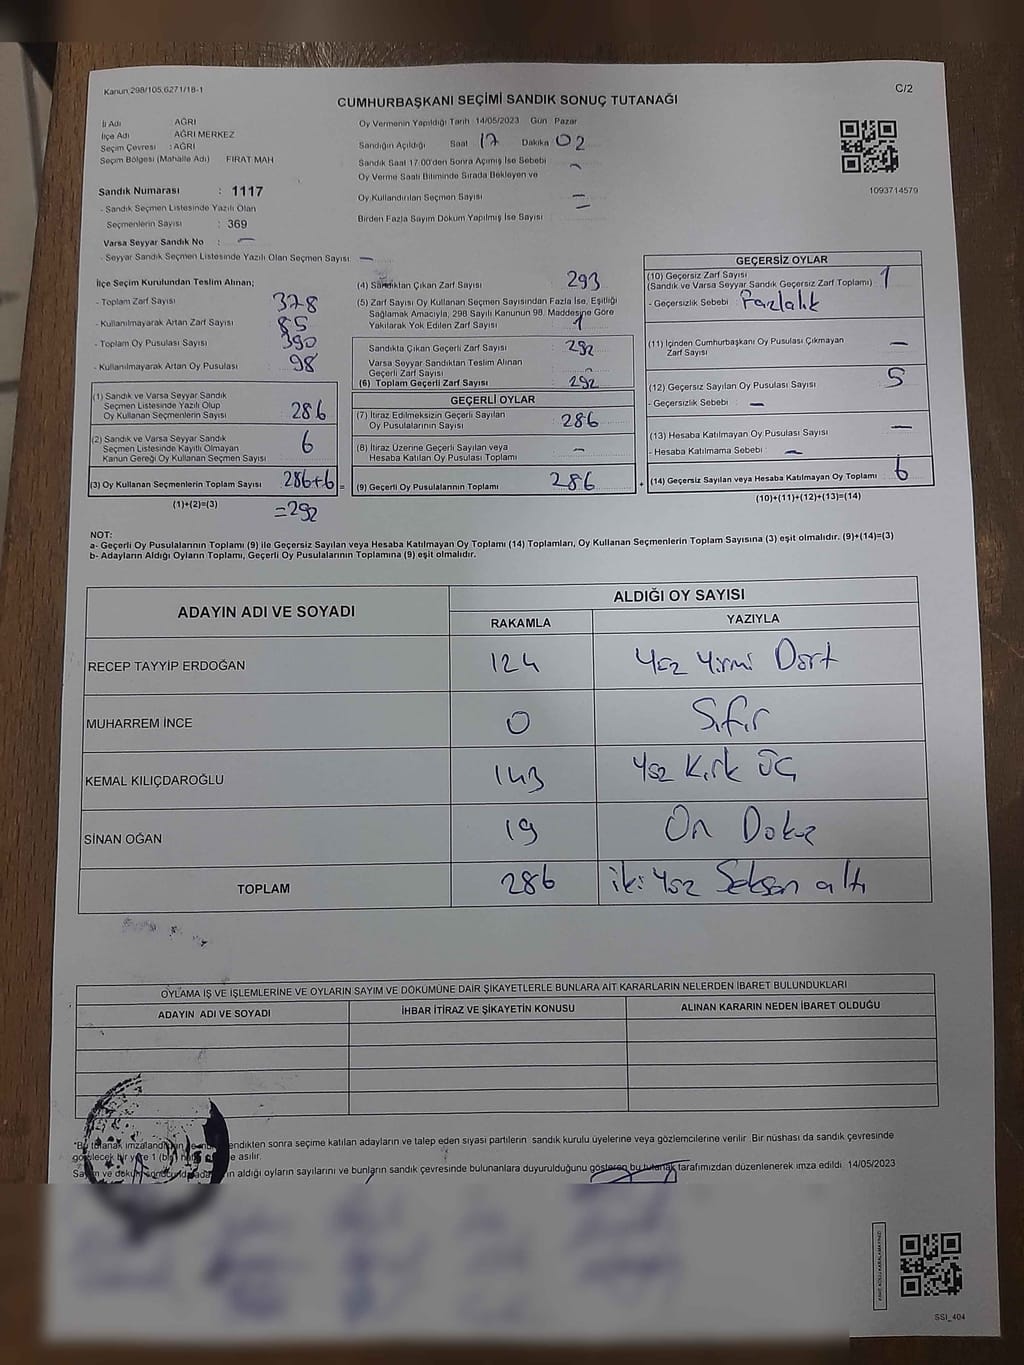 Kanun 298/105,6271/18-1
C/2
CUMHURBAŞKANI SEÇİMİ SANDIK SONUÇ TUTANAĞI
İl Adı AĞRI
İlçe Adı AĞRI MERKEZ
Seçim Çevresi : AĞRI
Seçim Bölgesi (Mahalle Adı) FIRAT MAH
Sandık Numarası : 1117
- Sandık Seçmen Listesinde Yazılı Olan
Seçmenlerin Sayısı : 369
Varsa Seyyar Sandık No : –
- Seyyar Sandık Seçmen Listesinde Yazılı Olan Seçmen Sayısı : –
Oy Vermenin Yapıldığı Tarih 14/05/2023 Gün Pazar
Sandığın Açıldığı Saat 17 Dakika 02
Sandık Saat 17:00'den Sonra Açılmış İse Sebebi –
Oy Verme Saati Bitiminde Sırada Bekleyen ve
Oy Kullandırılan Seçmen Sayısı –
Birden Fazla Sayım Döküm Yapılmış İse Sayısı –
1093714579
İlçe Seçim Kurulundan Teslim Alınan;
- Toplam Zarf Sayısı 378
- Kullanılmayarak Artan Zarf Sayısı 85
- Toplam Oy Pusulası Sayısı 390
- Kullanılmayarak Artan Oy Pusulası 98
(1) Sandık ve Varsa Seyyar Sandık
Seçmen Listesinde Yazılı Olup
Oy Kullanan Seçmenlerin Sayısı 286
(2) Sandık ve Varsa Seyyar Sandık
Seçmen Listesinde Kayıtlı Olmayan
Kanun Gereği Oy Kullanan Seçmen Sayısı 6
(3) Oy Kullanan Seçmenlerin Toplam Sayısı 286+6 =
(1)+(2)=(3) =292
(4) Sandıktan Çıkan Zarf Sayısı 293
(5) Zarf Sayısı Oy Kullanan Seçmen Sayısından Fazla İse, Eşitliği
Sağlamak Amacıyla, 298 Sayılı Kanunun 98. Maddesine Göre
Yakılarak Yok Edilen Zarf Sayısı 1
Sandıkta Çıkan Geçerli Zarf Sayısı 292
Varsa Seyyar Sandıktan Teslim Alınan
Geçerli Zarf Sayısı –
(6) Toplam Geçerli Zarf Sayısı 292
GEÇERLİ OYLAR
(7) İtiraz Edilmeksizin Geçerli Sayılan
Oy Pusulalarının Sayısı 286
(8) İtiraz Üzerine Geçerli Sayılan veya
Hesaba Katılan Oy Pusulası Toplamı –
(9) Geçerli Oy Pusulalarının Toplamı 286 +
GEÇERSİZ OYLAR
(10) Geçersiz Zarf Sayısı
(Sandık ve Varsa Seyyar Sandık Geçersiz Zarf Toplamı) 1
- Geçersizlik Sebebi Fazlalık
(11) İçinden Cumhurbaşkanı Oy Pusulası Çıkmayan
Zarf Sayısı –
(12) Geçersiz Sayılan Oy Pusulası Sayısı 5
- Geçersizlik Sebebi : –
(13) Hesaba Katılmayan Oy Pusulası Sayısı –
- Hesaba Katılmama Sebebi : –
(14) Geçersiz Sayılan veya Hesaba Katılmayan Oy Toplamı 6
(10)+(11)+(12)+(13)=(14)
NOT:
a- Geçerli Oy Pusulalarının Toplamı (9) ile Geçersiz Sayılan veya Hesaba Katılmayan Oy Toplamı (14) Toplamları, Oy Kullanan Seçmenlerin Toplam Sayısına (3) eşit olmalıdır. (9)+(14)=(3)
b- Adayların Aldığı Oyların Toplamı, Geçerli Oy Pusulalarının Toplamına (9) eşit olmalıdır.
ADAYIN ADI VE SOYADI ALDIĞI OY SAYISI
RAKAMLA YAZIYLA
RECEP TAYYİP ERDOĞAN 124 Yüz Yirmi Dört
MUHARREM İNCE 0 Sıfır
KEMAL KILIÇDAROĞLU 143 Yüz Kırk ÜÇ
SİNAN OĞAN 19 On Dokuz
TOPLAM 286 iki Yüz Seksen altı
OYLAMA İŞ VE İŞLEMLERİNE VE OYLARIN SAYIM VE DÖKÜMÜNE DAİR ŞİKAYETLERLE BUNLARA AİT KARARLARIN NELERDEN İBARET BULUNDUKLARI
ADAYIN ADI VE SOYADI İHBAR İTİRAZ VE ŞİKAYETİN KONUSU ALINAN KARARIN NEDEN İBARET OLDUĞU
*Bu tutanak imzalandıktan ve endikten sonra seçime katılan adayların ve talep eden siyasi partilerin sandık kurulu üyelerine veya gözlemcilerine verilir Bir nüshası da sandık çevresinde
görülecek bir yere 1 (bir) hafta asılır.
Sayım ve döküm sonucunda adayların aldığı oyların sayılarını ve bunların sandık çevresinde bulunanlara duyurulduğunu gösteren bu tutanak tarafımızdan düzenlenerek imza edildi 14/05/2023
SSI_404